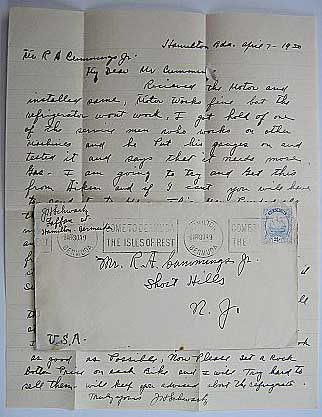 Hamilton Bda. April 7 - 1930
Mr R A Cummings Jr.
My Dear Mr Cummings
Received the Motor and
installed same, Motor Works fine but the
refrigerator wont work. I got hold of one
of the service men who works on other
Machines and he Put his gauges on and
tested it and says that it needs more
Gas - I am going to try and Get this
from Aiken and if I cant you will have
J W Schwartz
Hamilton Bermuda
COME TO BERMUDA
THE ISLES OF REST
HAMILTON
BERMUDA
COME T
THE I
BERMUDA
Mr. R. A. Cummings Jr.
Short Hills
N. J.
U.S.A.
as good as Possible, Now Please set a Rock
bottom Price on each Bike and I will Try hard to
sell them. Will keep you advised about the refrigerator.
Truly yours J W Schwartz